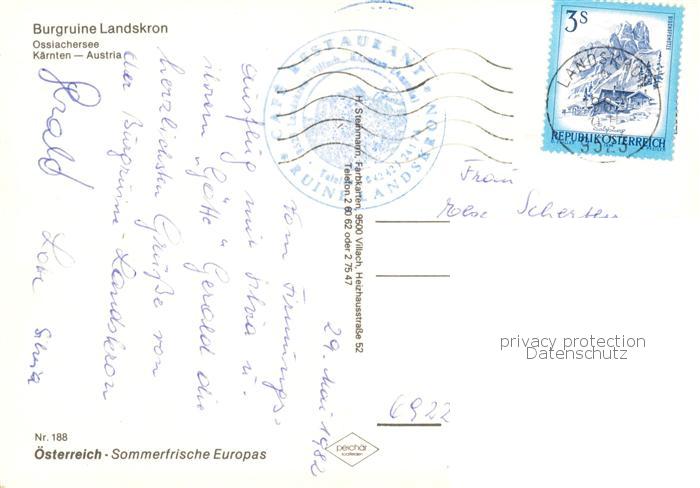 Burgruine Landskron
Ossiachersee
Kärnten — Austria
29. Mai 1982
Vom Firmungs-
ausflug mit Silvia u.
ihrem "Götte" Gerald die
herzlichsten Grüße von
der Burgruine-Landskron
Gerald
Silvia
H. Steinmann, Farbkarten, 9500 Villach, Heizhausstraße 52
Telefon 2 60 62 oder 2 75 47
CAFE RESTAURANT
BURGRUINE LANDSKRON
Villach, Kärnten (Austria)
3S
REPUBLIK ÖSTERREICH
LANDSKRON
9523
Frau
6922
privacy protection
Datenschutz
Nr. 188
Österreich - Sommerfrische Europas